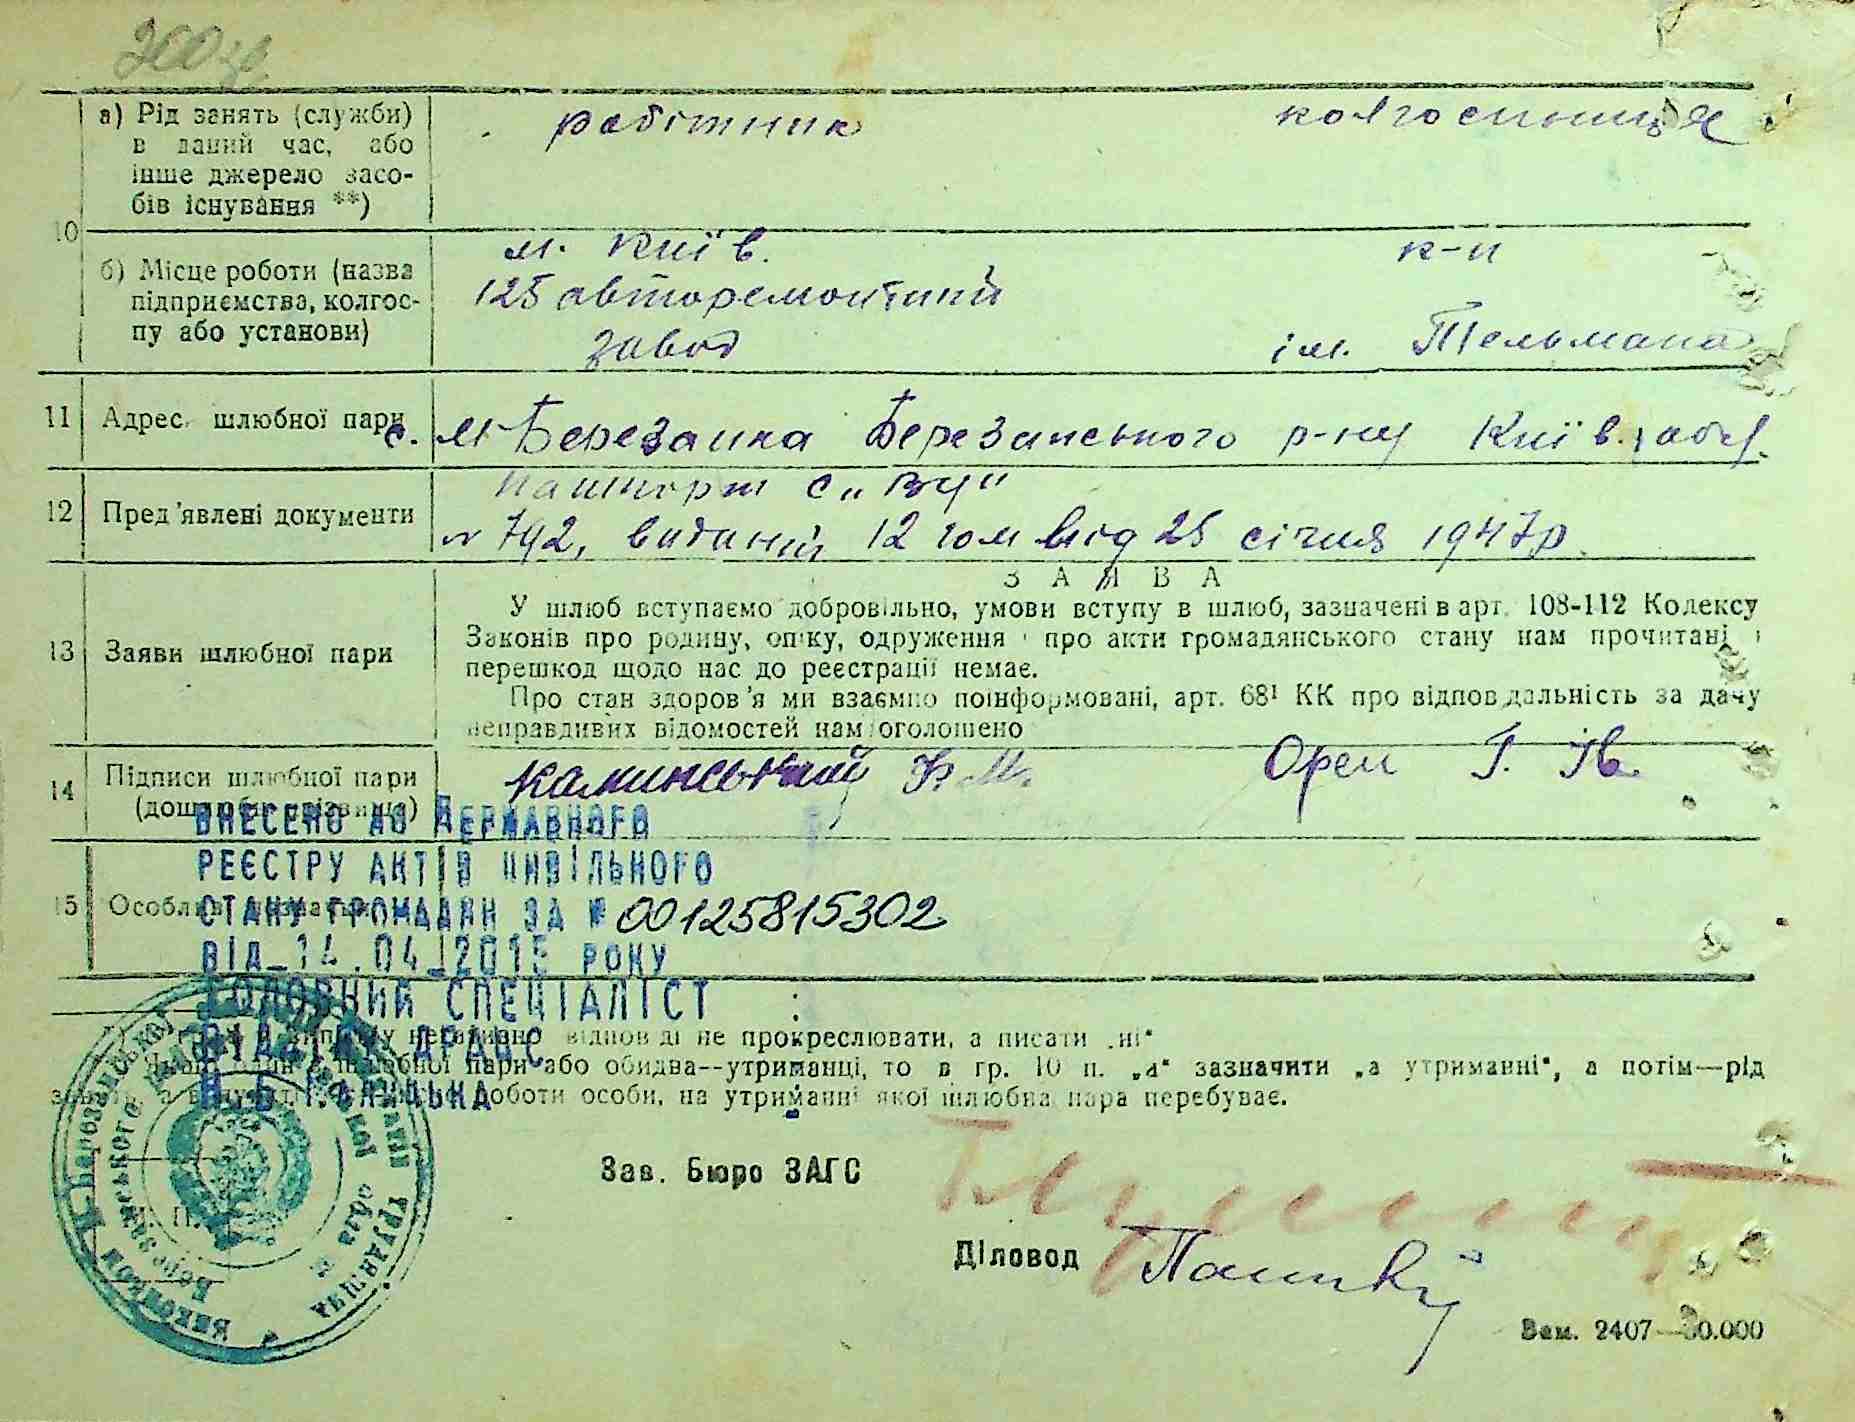 а) Рід занять (служби) в даний час, або інше джерело засо-
бів існування **)
робітник колгоспниця
10
б) Місце роботи (назва
підприємства, колгос-
пу або установи)
м. Київ. к-п
125 авторемонтний
завод ім. Тельмана
11 Адрес шлюбної пари
с. м Березанка Березанського р-ну Київ. обл.
12 Пред'явлені документи
пашпорт с "
№ 792, виданий 12 від 25 січня 1947р.
13 Заяви шлюбної пари
ЗАЯВА
У шлюб вступаємо добровільно, умови вступу в шлюб, зазначені в арт. 108-112 Кодексу
Законів про родину, опіку, одруження і про акти громадянського стану нам прочитані і
перешкод щодо нас до реєстрації немає.
Про стан здоров'я ми взаємно поінформовані, арт. 68¹ КК про відповідальність за дачу
неправдивих відомостей нам оголошено
14 Підписи шлюбної пари
(дошлюбні прізвища)
Каминський Ф. М. Орел Г. Ів.
15
ВНЕСЕНО ДО ДЕРЖАВНОГО
РЕЄСТРУ АКТІВ ЦИВІЛЬНОГО
СТАНУ ГРОМАДЯН ЗА № 00125815302
ВІД 14.04.2015 РОКУ
ГОЛОВНИЙ СПЕЦІАЛІСТ
ВІДДІЛУ ДРАЦС
негативно відповіді не прокреслювати, а писати „ні“
шлюбної пари або обидва--утриманці, то в гр. 10 п. „а“ зазначити „а утриманні“, а потім—рід
роботи особи, на утриманні якої шлюбна пара перебуває.
Зав. Бюро ЗАГС
М. П.
Діловод
Зам. 2407—30.000